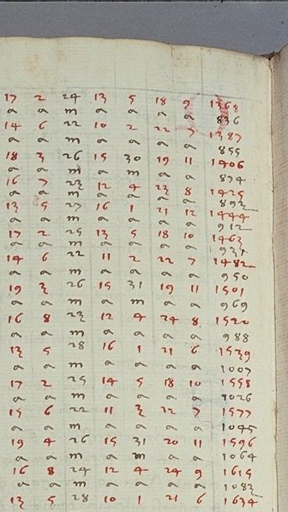 17 2 24 13 5 18 9 1368
a a m a a a a 836
14 6 22 10 2 22 7 1387
a a m a a a a 855
18 3 26 15 30 19 11 1406
a a m a m a a 874
16 7 23 12 4 23 8 1425
a a m a a a a 893
13 5 27 16 1 21 12 1444
a a m a a a a 912
17 2 25 13 5 18 10 1463
a a m a a a a 931
14 6 22 11 2 22 7 1482
a a m a a a a 950
19 3 26 15 31 19 11 1501
a a m a m a a 969
16 8 23 12 4 24 8 1520
a a m a a a a 988
13 5 28 16 1 21 6 1539
a a m a a a a 1007
17 2 25 14 5 18 10 1558
a a m a a a a 1026
15 6 22 11 3 22 7 1577
a a m a a a a 1045
19 4 26 15 31 20 11 1596
a a m a m a a 1064
16 8 24 12 4 24 9 1615
a a m a a a a 1083
13 5 28 10 1 21 6 1634